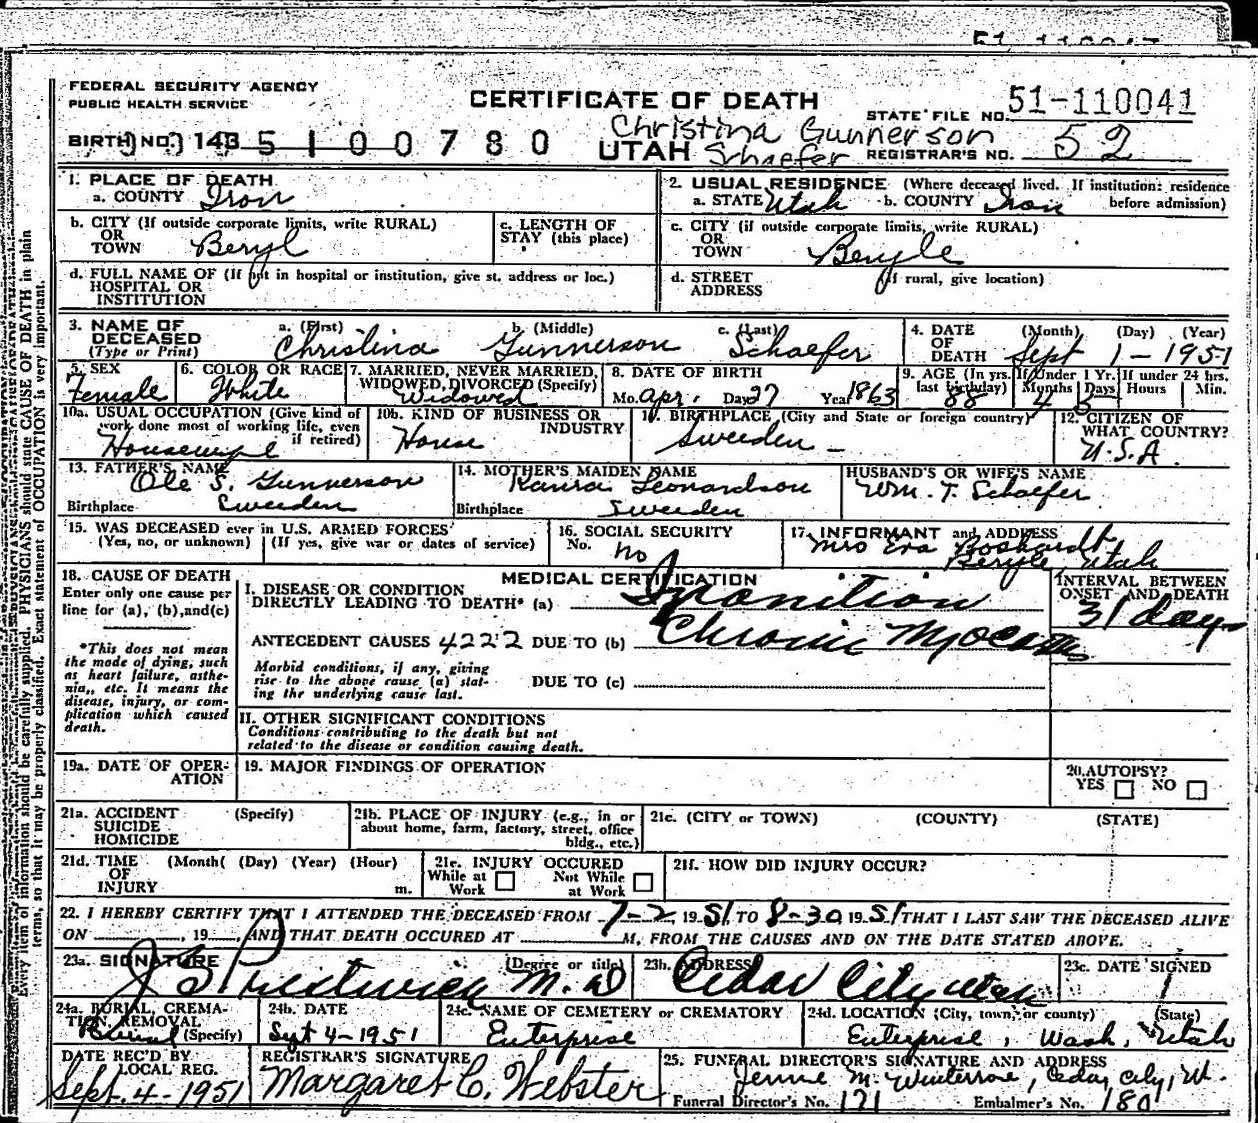 51 110041
FEDERAL SECURITY AGENCY
PUBLIC HEALTH SERVICE
CERTIFICATE OF DEATH
STATE FILE NO. 51-110041
BIRTH NO. 143 5 1 0 0 7 8 0
UTAH
Christina Gunnerson
Schaefer
REGISTRAR'S NO. 52
1. PLACE OF DEATH
a. COUNTY Iron
2. USUAL RESIDENCE (Where deceased lived. If institution: residence before admission)
a. STATE Utah b. COUNTY Iron
b. CITY (If outside corporate limits, write RURAL)
OR
TOWN Beryl
c. LENGTH OF
STAY (this place)
c. CITY (if outside corporate limits, write RURAL)
OR
TOWN Beryle
d. FULL NAME OF (If not in hospital or institution, give st. address or loc.)
HOSPITAL OR
INSTITUTION
d. STREET (If rural, give location)
ADDRESS
3. NAME OF DECEASED (Type or Print)
a. (First) b. (Middle) c. (Last)
Christina Gunnerson Schaefer
4. DATE OF DEATH (Month) (Day) (Year)
Sept 1-1951
5. SEX
Female
6. COLOR OR RACE
White
7. MARRIED, NEVER MARRIED,
WIDOWED, DIVORCED (Specify)
Widowed
8. DATE OF BIRTH
Mo. Apr. Day 27 Year 1863
9. AGE (In yrs. last birthday) 88
If Under 1 Yr. Months 4 Days 5
If under 24 hrs. Hours Min.
10a. USUAL OCCUPATION (Give kind of work done most of working life, even if retired)
Housewife
10b. KIND OF BUSINESS OR INDUSTRY
House
11. BIRTHPLACE (City and State or foreign country)
Sweeden
12. CITIZEN OF WHAT COUNTRY?
U.S.A.
13. FATHER'S NAME
Ole S. Gunnerson
Birthplace Sweeden
14. MOTHER'S MAIDEN NAME
Leonardson
Birthplace Sweeden
HUSBAND'S OR WIFE'S NAME
Wm. T. Schaefer
15. WAS DECEASED ever in U.S. ARMED FORCES
(Yes, no, or unknown) (If yes, give war or dates of service)
16. SOCIAL SECURITY
No. no
17. INFORMANT and ADDRESS
Mrs Eva Boshardt
Beryle, Utah
18. CAUSE OF DEATH
Enter only one cause per line for (a), (b), and (c)
*This does not mean the mode of dying, such as heart failure, asthenia,, etc. It means the disease, injury, or complication which caused death.
MEDICAL CERTIFICATION
I. DISEASE OR CONDITION
DIRECTLY LEADING TO DEATH* (a) Inanition
INTERVAL BETWEEN ONSET AND DEATH
31 days
ANTECEDENT CAUSES 4222 DUE TO (b) Chronic
Morbid conditions, if any, giving rise to the above cause (a) stating the underlying cause last.
DUE TO (c)
II. OTHER SIGNIFICANT CONDITIONS
Conditions contributing to the death but not related to the disease or condition causing death.
19a. DATE OF OPERATION
19. MAJOR FINDINGS OF OPERATION
20. AUTOPSY?
YES NO
21a. ACCIDENT SUICIDE HOMICIDE (Specify)
21b. PLACE OF INJURY (e.g., in or about home, farm, factory, street, office bldg., etc.)
21c. (CITY or TOWN) (COUNTY) (STATE)
21d. TIME OF INJURY (Month( (Day) (Year) (Hour) m.
21e. INJURY OCCURED
While at Work Not While at Work
21f. HOW DID INJURY OCCUR?
22. I HEREBY CERTIFY THAT I ATTENDED THE DECEASED FROM 7-2 19 51 TO 8-30 19 51 THAT I LAST SAW THE DECEASED ALIVE
ON , 19 , AND THAT DEATH OCCURED AT M, FROM THE CAUSES AND ON THE DATE STATED ABOVE.
23a. SIGNATURE (Degree or title)
J S Prestwich M.D
23b. ADDRESS
Cedar City Utah
23c. DATE SIGNED
24a. BURIAL, CREMATION, REMOVAL (Specify)
Burial
24b. DATE
Sept 4-1951
24c. NAME OF CEMETERY or CREMATORY
Enterprise
24d. LOCATION (City, town, or county) (State)
Enterprise, Wash, Utah
DATE REC'D BY LOCAL REG.
Sept. 4-1951
REGISTRAR'S SIGNATURE
Margaret C. Webster
25. FUNERAL DIRECTOR'S SIGNATURE AND ADDRESS
Jennie M. Winterrose, Cedar City, Ut.
Funeral Director's No. 171 Embalmer's No. 180
Every item of information should be carefully supplied. PHYSICIANS should state CAUSE OF DEATH in plain
terms, so that it may be properly classified. Exact statement of OCCUPATION is very important.